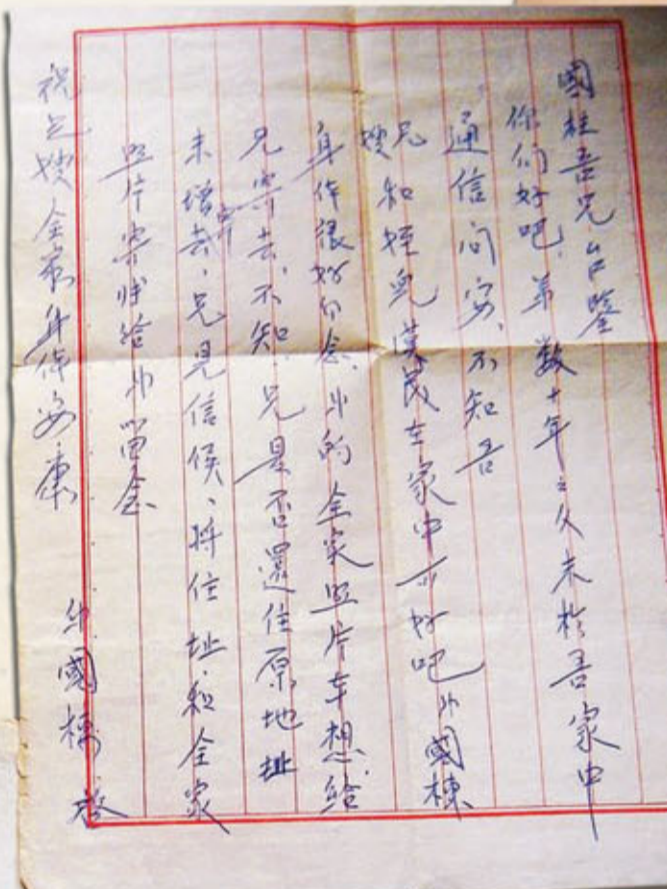 國柱吾兄台鑒
你们好吧、弟數十年之久未於吾家中
通信问安、不知吾
兄嫂和姪兒漢民在家中可好吧 小國棟
身体很好勿念、小的全家照片本想给
兄寄去、不知、兄是否還住原地址
未寄去、兄見信候、将住址、和全家
照片寄给小留念
祝兄嫂全家身体安康
小國棟 啟